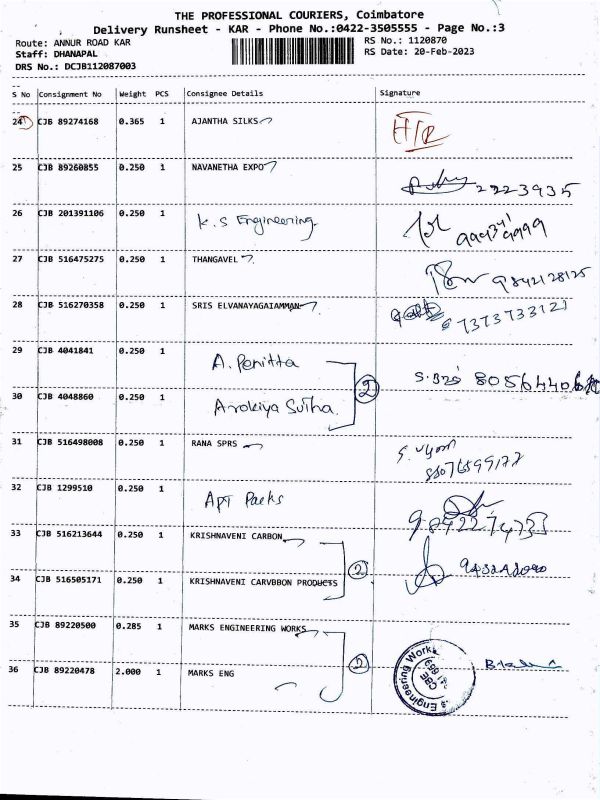 THE PROFESSIONAL COURIERS, Coimbatore
Delivery Runsheet - KAR - Phone No.:0422-3505555 - Page No.:3
Route: ANNUR ROAD KAR RS No.: 1120870
Staff: DHANAPAL RS Date: 20-Feb-2023
DRS No.: DCJB112087003
S No Consignment No Weight PCS Consignee Details Signature
24 CJB 89274168 0.365 1 AJANTHA SILKS
25 CJB 89260855 0.250 1 NAVANETHA EXPO 2223935
26 CJB 201391106 0.250 1 K.S Engineering.
27 CJB 516475275 0.250 1 THANGAVEL 9842128125
28 CJB 516270358 0.250 1 SRIS ELVANAYAGAIAMMAN 7373733121
29 CJB 4041841 0.250 1 A. Penitta
2
30 CJB 4048860 0.250 1 Arokiya Sutha.
31 CJB 516498008 0.250 1 RANA SPRS
32 CJB 1299510 0.250 1 APT Packs
33 CJB 516213644 0.250 1 KRISHNAVENI CARBON
2
34 CJB 516505171 0.250 1 KRISHNAVENI CARVBBON PRODUCTS
35 CJB 89220500 0.285 1 MARKS ENGINEERING WORKS
2
36 CJB 89220478 2.000 1 MARKS ENG
Engineering Works
CBE